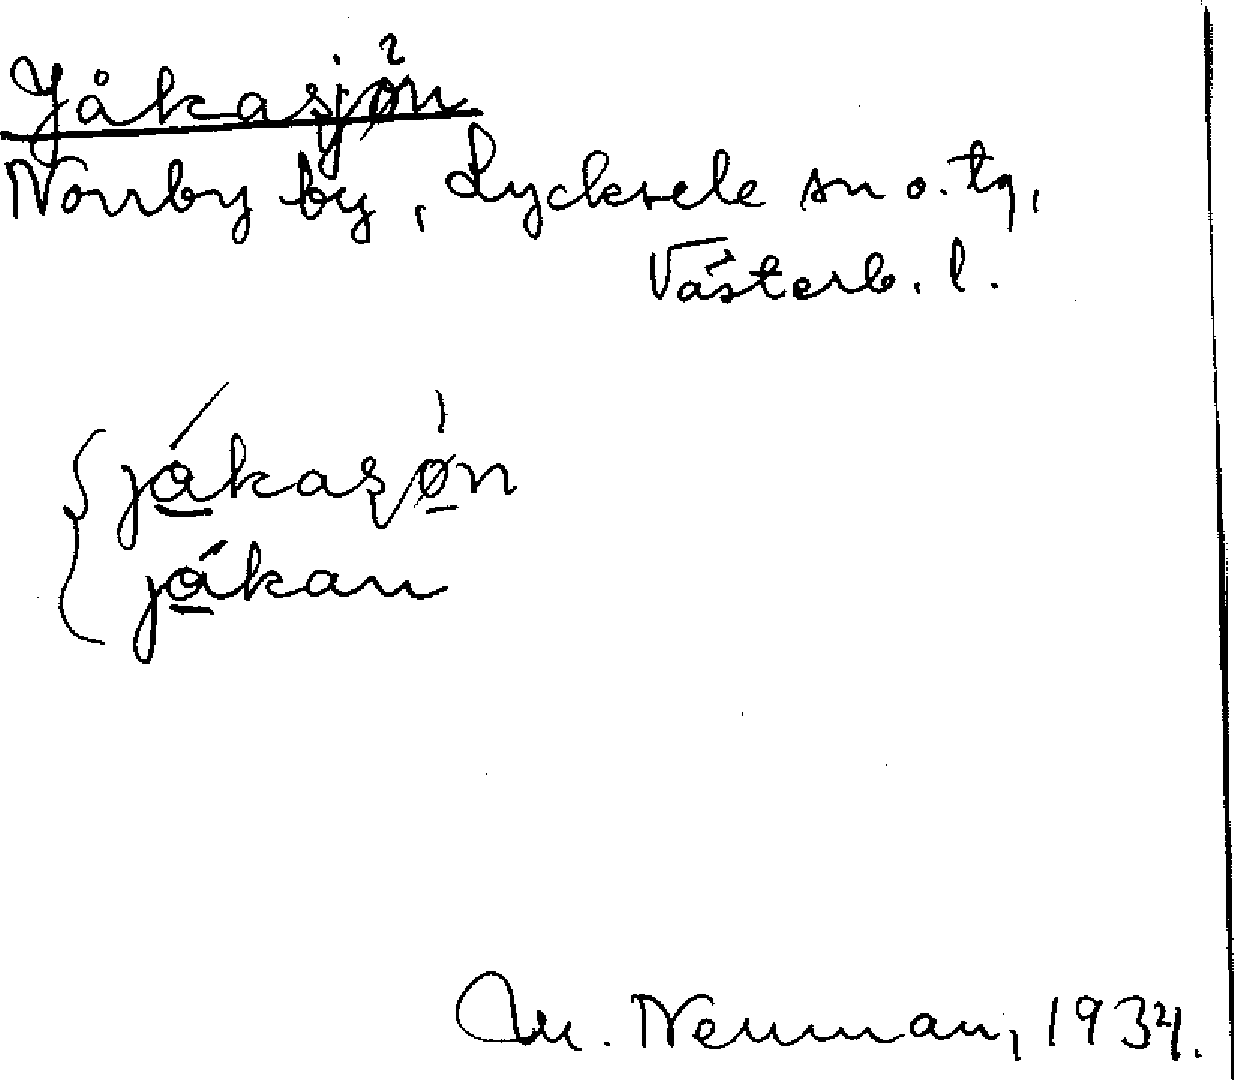 Jåkasjön
Norrby by, Lycksele sn o. tg,
Västerb. l.
jåkasjøn
jåkan
M. Neuman, 1934.